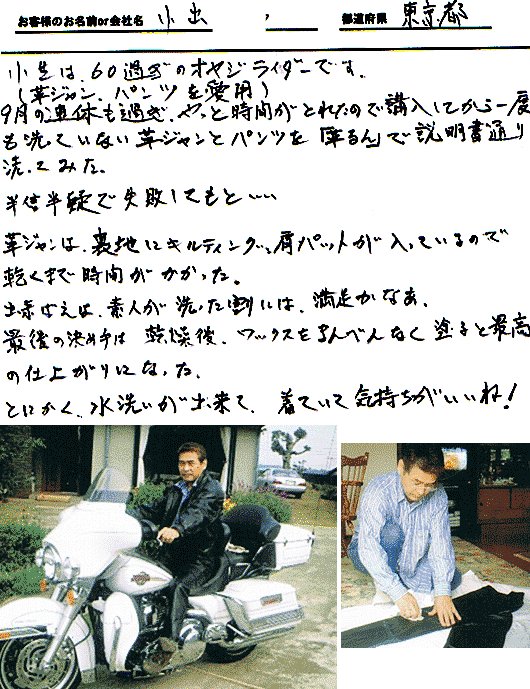 お客様のお名前or会社名 小出 都道府県 東京都
小生は、60過ぎのオヤジライダーです。
(革ジャン、パンツを愛用)
9月の連休も過ぎ、やっと時間がとれたので購入してから一度
も洗っていない革ジャンとパンツを「革るん」で説明書通り
洗ってみた。
半信半疑で失敗してもと‥‥
革ジャンは、裏地にキルティング、肩パットが入っているので
乾くまで時間がかかった。
出来ばえは、素人が洗った割には、満足かなあ、
最後の決め手は 乾燥後、ワックスをまんべんなく塗ると最高
の仕上がりになった。
とにかく、水洗いが出来て、着ていて気持ちがいいね!